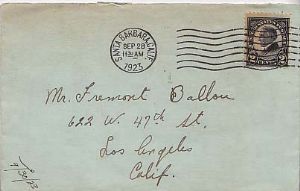 SANTA BARBARA, CALIF.
SEP 28
11 30 AM
1923
2 CENTS 2
Mr. Fremont Ballou
622 W. 47th St.
Los Angeles
Calif.